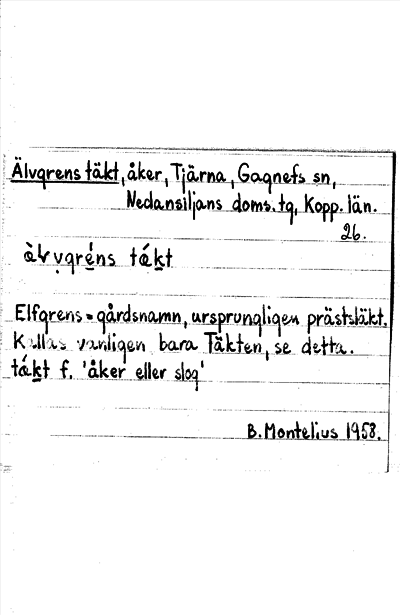 Älvgrens täkt, åker, Tjärna, Gagnefs sn,
Nedansiljans doms.tg, Kopp. län.
26.
täkt
Elfgrens = gårdsnamn, ursprungligen prästsläkt.
Kallas vanligen bara Täkten, se detta.
täkt f. 'åker eller slog'
B. Montelius 1958.